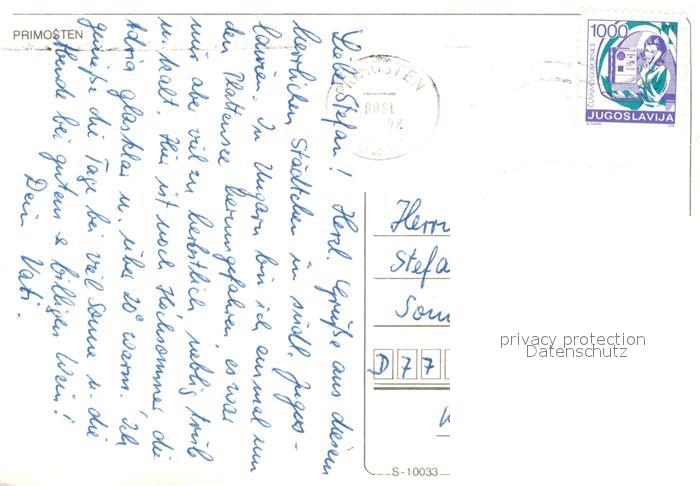 PRIMOŠTEN
Lieber Stefan! Herzl. Grüße aus diesem
herrlichen Städtchen in südl. Jugos-
lawien. In Ungarn bin ich einmal um
den Plattensee herumgefahren, es war
mir aber viel zu herbstlich neblig trüb
u. kalt. Hier ist noch Hochsommer, die
Adria glasklar u. über 20° warm. Ich
genieße die Tage bei viel Sonne u. die
Abende bei gutem & billigem Wein!
Dein Vati.
1000
ČUVAJMO GOVORNICE
JUGOSLAVIJA
Herrn
Stefa
Son
D 77
S-10033
privacy protection
Datenschutz